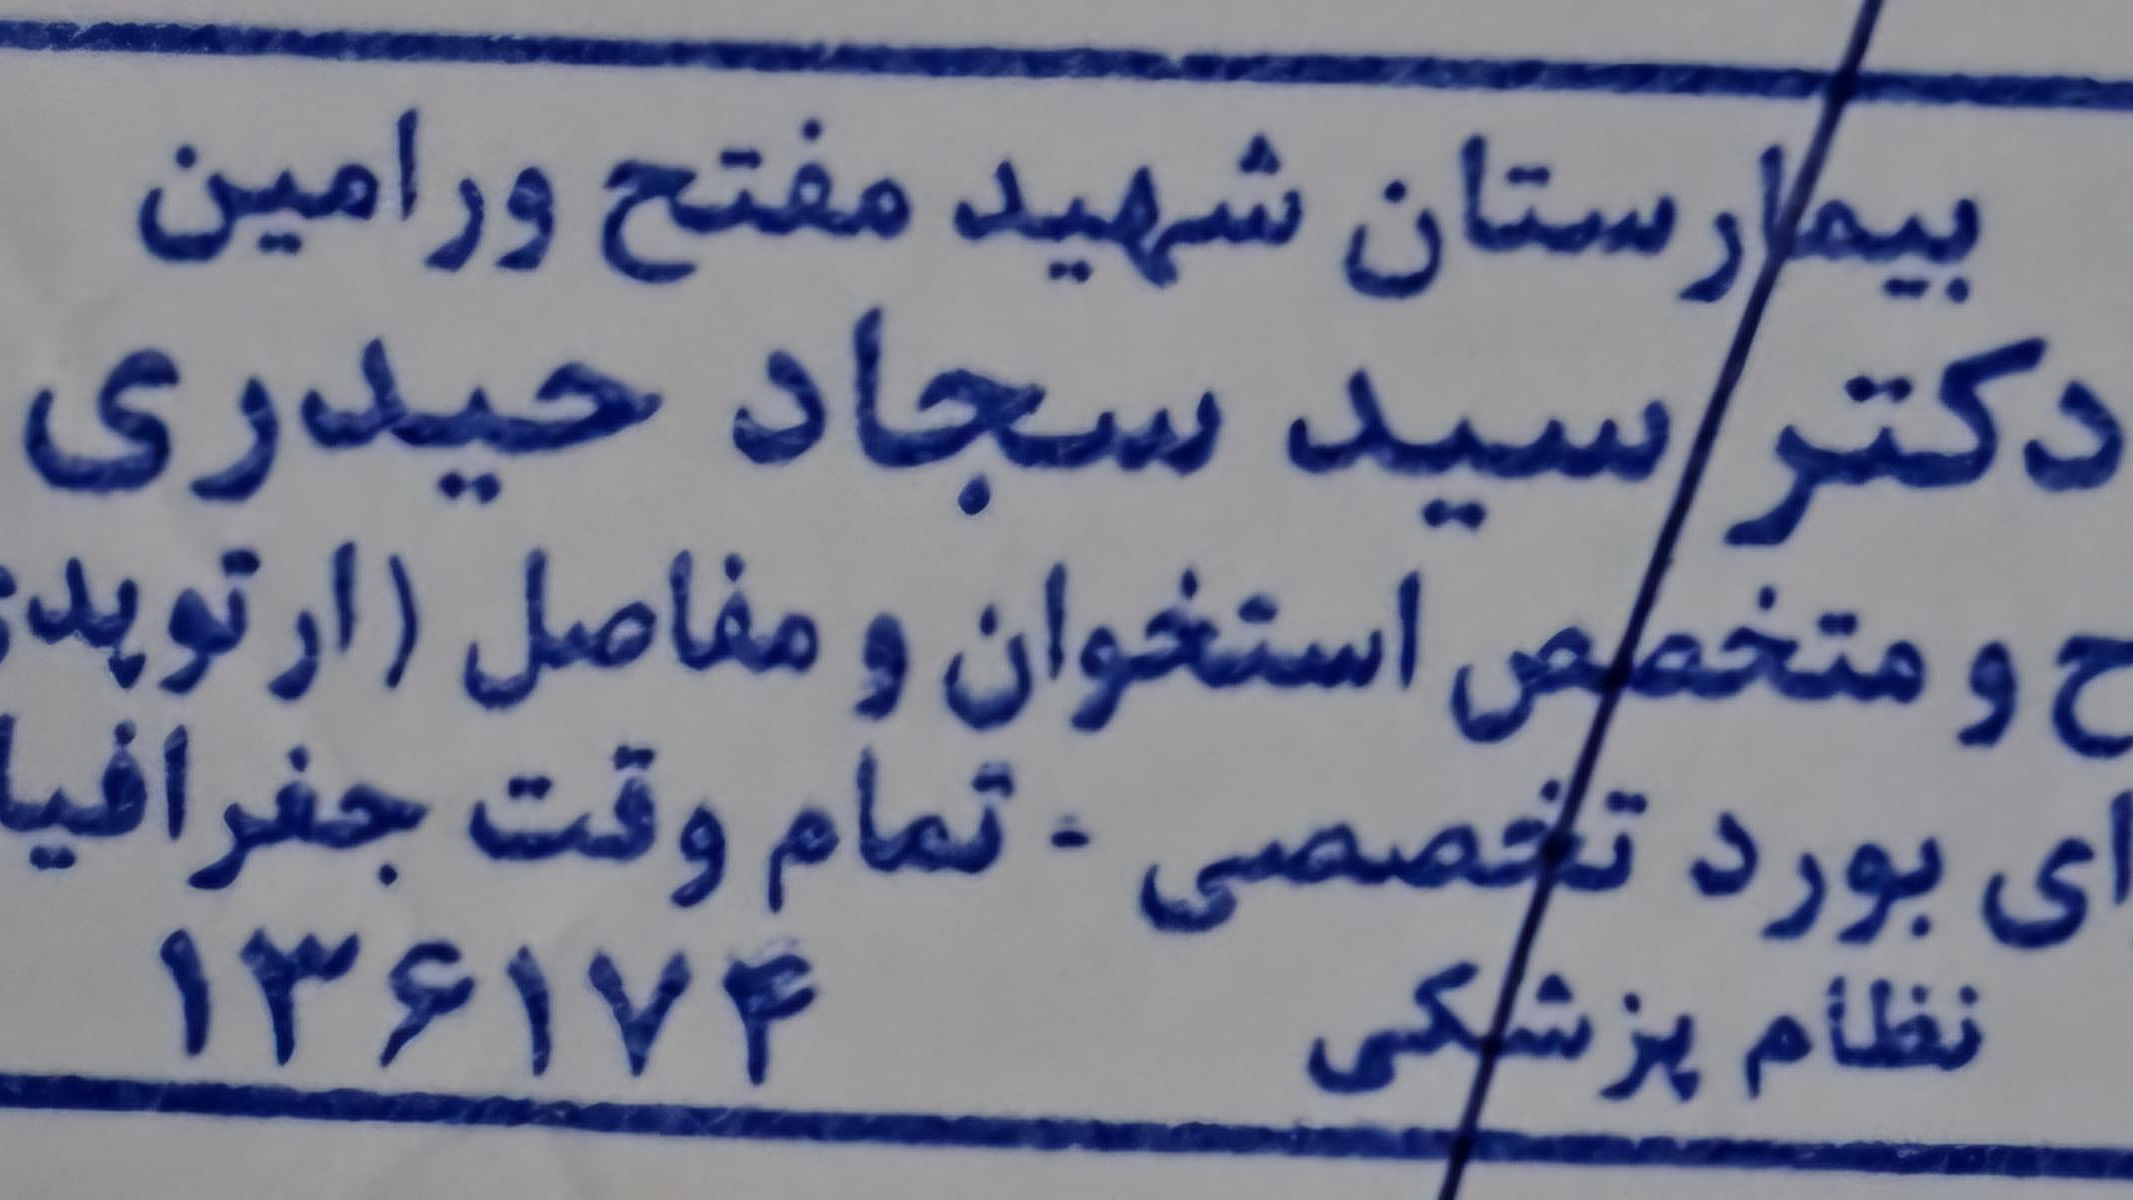 بیمارستان شهید مفتح ورامین
دکتر سید سجاد حیدری
ح و متخصص استخوان و مفاصل (ارتوپدی
ای بورد تخصصی - تمام وقت جغرافیا
نظام پزشکی ۱۳۶۱۷۴